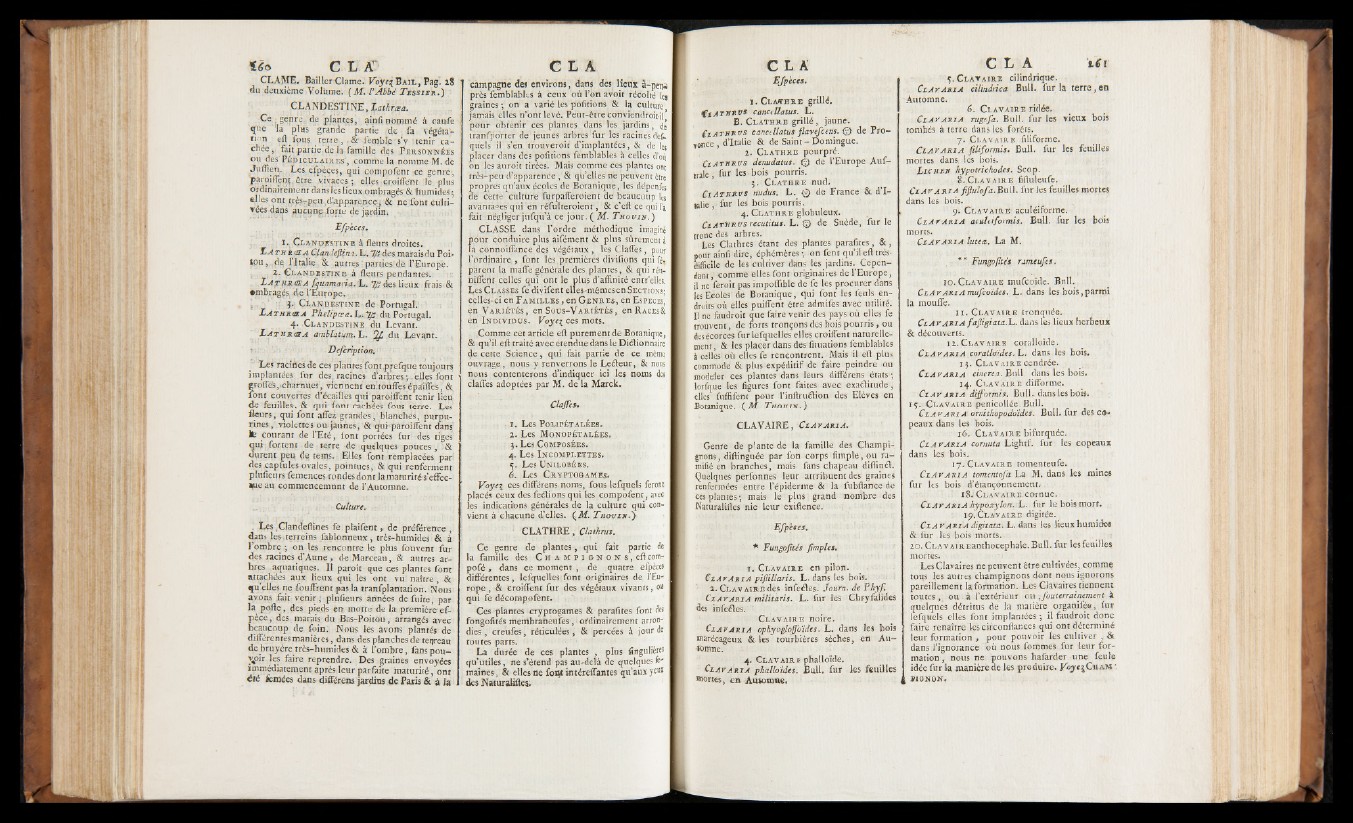 160 CLA
CLAME. Bailler Clame. Voyez BAIL, Pag. 28
du deuxième Volume. (M. l'Abbé TESSIER.)
CLANDESTINE, Lathræa.
Ce genre de plantes, ainsi nommé à cause
que la plus grande partie de sa végéta-
tion est sous terre, & semble s'y tenir ca-
chée, fait partie de la famille des PERSONNÉES
ou des PÉDICULAIRES, comme la nomme M. de
Jussieu. Les espèces, qui composent ce genre,
paroissent être vivaces; elles croissent le plus
ordinairement dans les lieux ombragés & humides;
elles ont très-peu d'apparence, & ne sont culti-
vées dans aucune sorte de jardin.
Espèces.
1. CLANDESTINE à fleurs droites.
LATHRÆA Clandestina. L. ♃ des marais du Poi-
tou, de l'Italie & autres parties de l'Europe.
2. CLANDESTINE à fleurs pendantes.
LATHRÆA squamaria. L. ♃ des lieux frais &
ombragés de l'Europe.
3. CLANDESTINE de Portugal.
LATHRÆA Phelipæa. L. ♃ du Portugal.
4. CLANDESTINE du Levant.
LATHRÆA amblatum. L. ♃ du Levant.
Description.
Les racines de ces plantes sont presque toujours
implantées sur des racines d'arbres; elles sont
grosses, charnues, viennent en touffes épaisses, &
sont couvertes d'écailles qui paroissent tenir lieu
de feuilles, & qui sont cachées sous terre. Les
fleurs, qui sont assez grandes, blanches, purpu-
rines, violettes ou jaunes, & qui paroissent dans
le courant de l'Eté, sont portées sur des tiges
qui sortent de terre de quelques pouces, &
durent peu de tems. Elles sont remplacées par
des capsules ovales, pointues, & qui renferment
plusieurs semences rondes dont la maturité s'effec-
tue au commencement de l'Automne.
Culture.
Les Clandestines se plaisent, de préférence,
dans les terreins sablonneux, très-humides & à
l'ombre; on les rencontre le plus souvent sur
des racines d'Aune, de Marceau, & autres ar-
bres aquatiques. Il paroît que ces plantes sont
attachées aux lieux qui les ont vu naître, &
qu'elles ne souffrent pas la transplantation. Nous
avons fait venir, plusieurs années de suite, par
la poste, des pieds en motte de la première es-
pèce, des marais du Bas-Poitou, arrangés avec
beaucoup de soin. Nous les avons plantés de
différentes manières, dans des planches de terreau
de bruyère très-humides & à l'ombre, sans pou-
voir les faire reprendre. Des graines envoyées
immédiatement après leur parfaite maturité, ont
été semées dans différens jardins de Paris & à la
CLA
campagne des environs, dans des lieux à-peu-
près semblables à ceux où l'on avoit récolté les
graines; on a varié les positions & la culture,
jamais elles n'ont levé. Peut-être conviendroit-il,
pour obtenir ces plantes dans les jardins, de
transporter de jeunes arbres sur les racines des-
quels il s'en trouveroit d'implantées, & de les
placer dans des positions semblables à celles d'où
on les auroit tirées. Mais comme ces plantes ont
très-peu d'apparence, & qu'elles ne peuvent être
propres qu'aux écoles de Botanique, les dépenses
de cette culture surpasseroient de beaucoup les
avantages qui en résulteroient, & c'est ce qui l'a
fait négliger jusqu'à ce jour. (M. THOUIN.)
CLASSE dans l'ordre méthodique imaginé
pour conduire plus aisément & plus sûrement à
la connoissance des végétaux, les Classes, pour
l'ordinaire, sont les premières divisions qui sé-
parent la masse générale des plantes, & qui réu-
nissent celles qui ont le plus d'affinité entr'elles.
Les CLASSES se divisent elles-mêmes en SECTIONS;
celles-ci en FAMILLES, en GENRES, en ESPÈCES,
en VARIÉTÉS, en SOUS-VARIÉTÉS, en RACES &
en INDIVIDUS. Voyez ces mots.
Comme cet article est purement de Botanique,
& qu'il est traité avec étendue dans le Dictionnaire
de cette Science, qui fait partie de ce même
ouvrage, nous y renverrons le Lecteur, & nous
nous contenterons d'indiquer ici les noms des
classes adoptées par M. de la Marck.
Classes.
1. Les POLIPÉTALÉES.
2. Les MONOPÉTALÉES.
3. Les COMPOSÉES.
4. Les INCOMPLETTES.
5. Les UNILOBÉES.
6. Les CRYPTOGAMES.
Voyez ces différens noms, sous lesquels seront
placés ceux des sections qui les composent, avec
les indications générales de la culture qui con-
vient à chacune d'elles. (M. THOUIN.)
CLATHRE, Clathrus.
Ce genre de plantes, qui fait partie de
la famille des CHAMPIGNONS, est com-
posé, dans ce moment, de quatre espèces
différentes, lesquelles sont originaires de l'Eu-
rope, & croissent sur des végétaux vivants, ou
qui se décomposent.
Ces plantes cryptogames & parasites sont des
fongosités membraneuses, ordinairement arron-
dies, creuses, réticulées, & percées à jour de
toutes parts.
La durée de ces plantes, plus singulières
qu'utiles, ne s'étend pas au-delà de quelques se-
maines, & elles ne sont intéressantes qu'aux yeux
des Naturalistes.
CLA
Espèces.
1. CLATHRE grillé.
CLATHRUS cancellatus. L.
B. CLATHRE grillé, jaune.
CLATHRUS cancellatus flavescens. ☉ de Pro-
vence, d'Italie & de Saint-Domingue.
2. CLATHRE pourpré.
CLATHRUS denudatus. ☉ de l'Europe Aus-
trale, sur les bois pourris.
3. CLATHRE nud.
CLATHRUS nudus. L. ☉ de France & d'I-
talie, sur les bois pourris.
4. CLATHRE globuleux.
CLATHRUS recutitus. L. ☉ de Suède, sur le
tronc des arbres.
Les Clathres étant des plantes parasites, &,
pour ainsi dire, éphémères; on sent qu'il est très-
difficile de les cultiver dans les jardins. Cepen-
dant, comme elles sont originaires de l'Europe,
il ne seroit pas impossible de se les procurer dans
les Ecoles de Botanique, qui sont les seuls en-
droits où elles puissent être admises avec utilité.
Il ne faudroit que faire venir des pays où elles se
trouvent, de forts tronçons des bois pourris, ou
des écorces sur lesquelles elles croissent naturelle-
ment, & les placer dans des situations semblables
à celles où elles se rencontrent. Mais il est plus
commode & plus expéditif de faire peindre ou
modeler ces plantes dans leurs différens états;
lorsque les figures sont faites avec exactitude,
elles suffisent pour l'instruction des Elèves en
Botanique. (M THOUIN.)
CLAVAIRE, CLAVARIA.
Genre de plante de la famille des Champi-
gnons, distinguée par son corps simple, ou ra-
mifié en branches, mais sans chapeau distinct.
Quelques personnes leur attribuent des graines
renfermées entre l'épiderme & la substance de
ces plantes; mais le plus grand nombre des
Naturalistes nie leur existence.
Espèces.
* Fungosités simples.
1. CLAVAIRE en pilon.
CLAVARIA pistillaris. L. dans les bois.
2. CLAVAIRE des insectes. Journ. de Phys.
CLAVARIA militaris. L. sur les Chrysalides
des insectes.
3. CLAVAIRE noire.
CLAVARIA ophyoglossoïdes. L. dans les bois
marécageux & les tourbières sèches, en Au-
tomne.
4. CLAVAIRE phalloïde.
CLAVARIA phalloïdes. Bull. sur les feuilles
mortes, en Automne.
CLA 161
5. CLAVAIRE cilindrique.
CLAVARIA cilindrica Bull. sur la terre, en
Automne.
6. CLAVAIRE ridée.
CLAVARIA rugosa. Bull. sur les vieux bois
tombés à terre dans les forêts.
7. CLAVAIRE filiforme.
CLAVARIA filiformis. Bull. sur les feuilles
mortes dans les bois.
LICHEN hypotrichodes. Scop.
8. CLAVAIRE fistuleuse.
CLAVARIA fistulosa. Bull. sur les feuilles mortes
dans les bois.
9. CLAVAIRE aculéiforme.
CLAVARIA aculeiformis. Bull. sur les bois
morts.
CLAVARIA lutea. La M.
** Fungosités rameuses.
10. CLAVAIRE muscoïde. Bull.
CLAVARIA muscoïdes. L. dans les bois, parmi
la mousse.
11. CLAVAIRE tronquée.
CLAVARIA fastigiata. L. dans les lieux herbeux
& découverts.
12. CLAVAIRE coralloïde.
CLAVARIA coralloïdes. L. dans les bois.
13. CLAVAIRE cendrée.
CLAVARIA cinerea. Bull dans les bois.
14. CLAVAIRE difforme.
CLAVARIA difformis. Bull. dans les bois.
15. CLAVAIRE penicollée Bull.
CLAVARIA ornithopodoïdes. Bull. sur des co-
peaux dans les bois.
16. CLAVAIRE bifurquée.
CLAVARIA cornuta Lightf. sur les copeaux
dans les bois.
17. CLAVAIRE tomenteuse.
CLAVARIA tomentosa La M. dans les mines
sur les bois d'étançonnement.
18. CLAVAIRE cornue.
CLAVARIA hypoxylon. L. sur le bois mort.
19. CLAVAIRE digitée.
CLAVARIA digitata. L. dans les lieux humides
& sur les bois morts.
20. CLAVAIRE anthocephale. Bull. sur les feuilles
mortes.
Les Clavaires ne peuvent être cultivées, comme
tous les autres champignons dont nous ignorons
pareillement la formation. Les Clavaires tiennent
toutes, ou à l'extérieur ou souterrainement à
quelques détritus de la matière organisée, sur
lesquels elles sont implantées; il faudroit donc
faire renaître les circonstances qui ont déterminé
leur formation, pour pouvoir les cultiver, &
dans l'ignorance où nous sommes sur leur for-
mation, nous ne pouvons hasarder une seule
idée sur la manière de les produire. Voyez CHAM-
PIGNON.